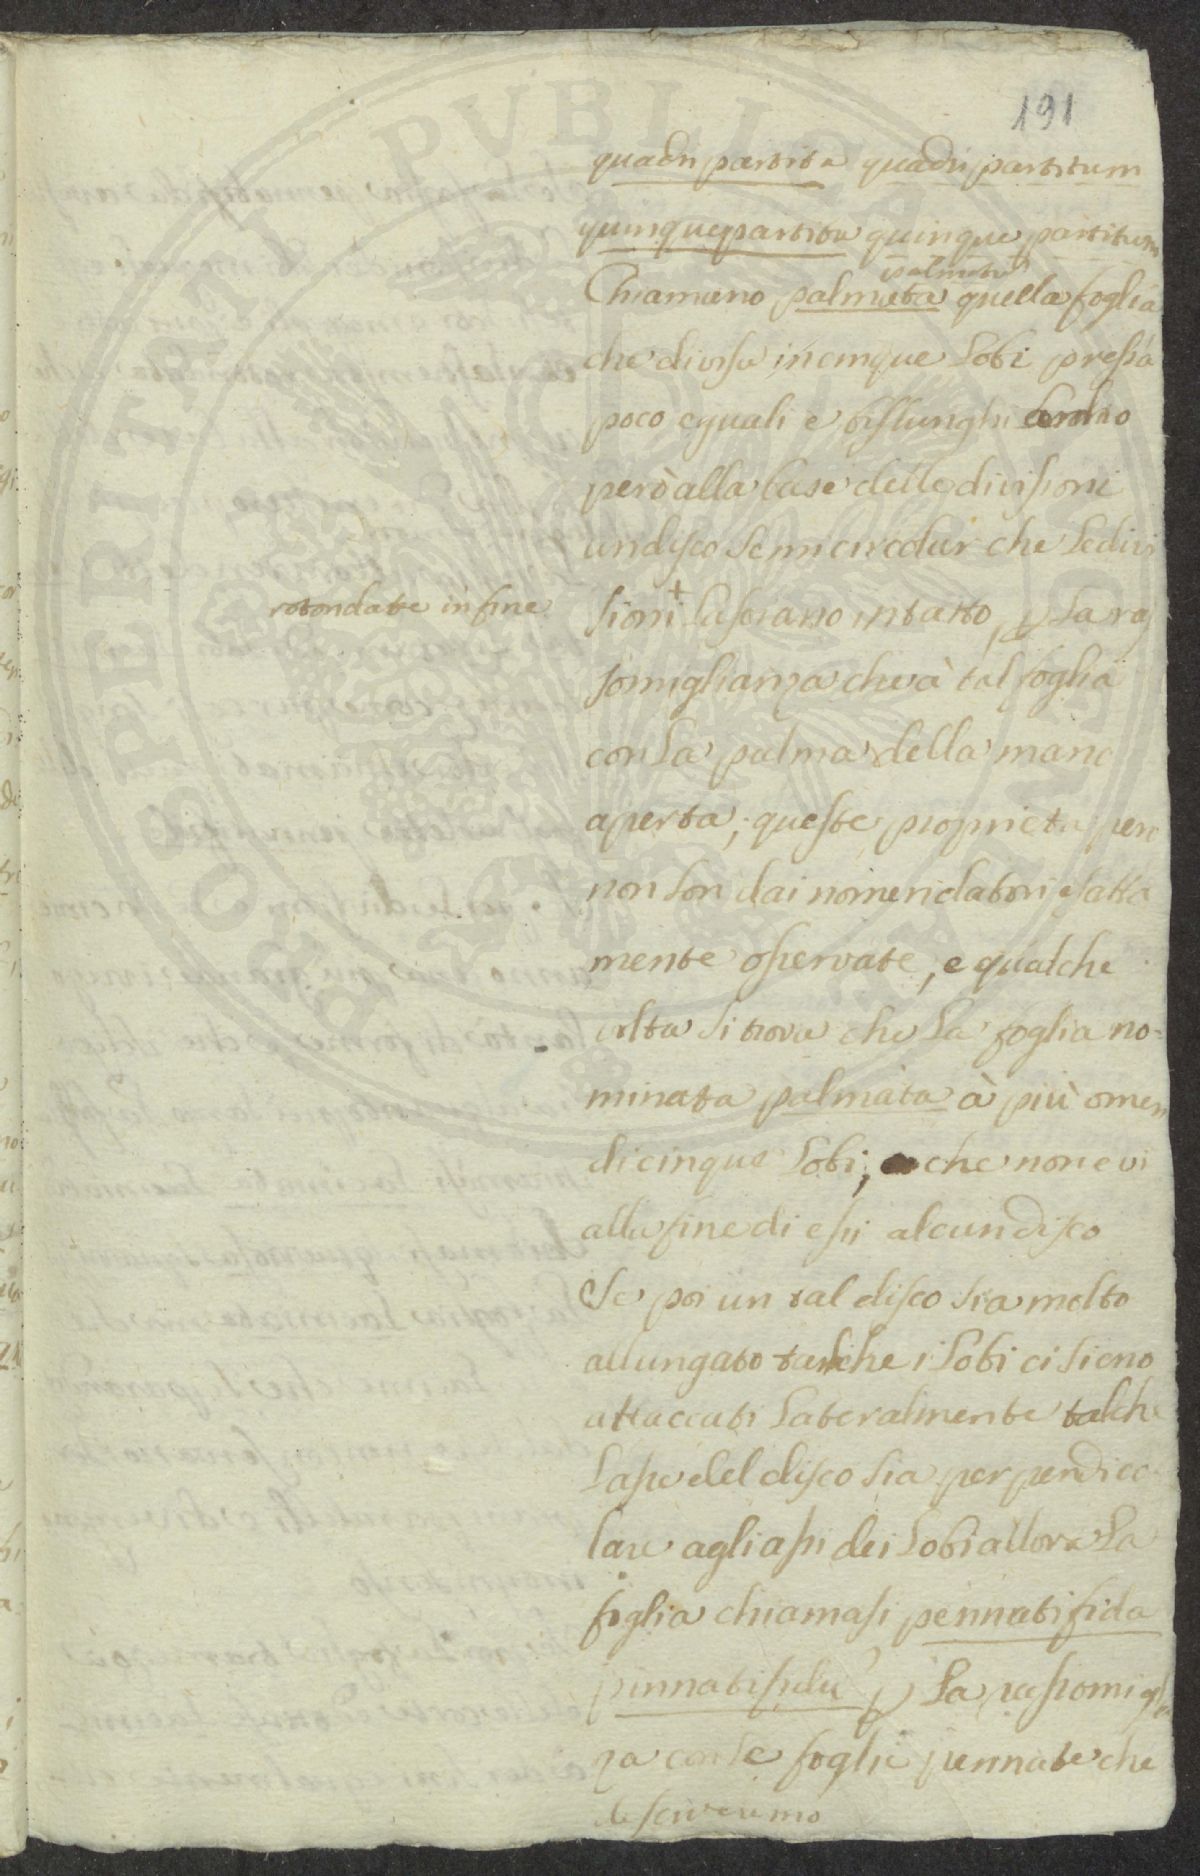 191
quadripartita quadripartitum
quinquepartita quinquepartitum
palmata
Chiamano palmata quella foglia
che divisa in cinque lobi pressa
poco eguali e bislunghi
però alla base delle divisioni
un disco semicircolar che le divi
rotondate in fine
sioni + lasciano intatto, p la ras
somiglianza che à tal foglia
con la palma della mano
aperta; queste proprietà pero
non son dai nomenclatori esatta
mente osservate, e qualche
volta si trova che la foglia no-
minata palmata à più o men
di cinque lobi, che non e vi
alla fine di essi alcun disco
Se poi un tal disco sia molto
allungato talche i lobi ci sieno
attaccati lateralmente talche
l'asse del disco sia perpendico
lare agli assi dei lobi allora la
foglia chiamasi pennatifida
pinnatifida p la rassomiglian
za con le foglie pennate che
descriveremo
PROSPERITATI PVBLICAE